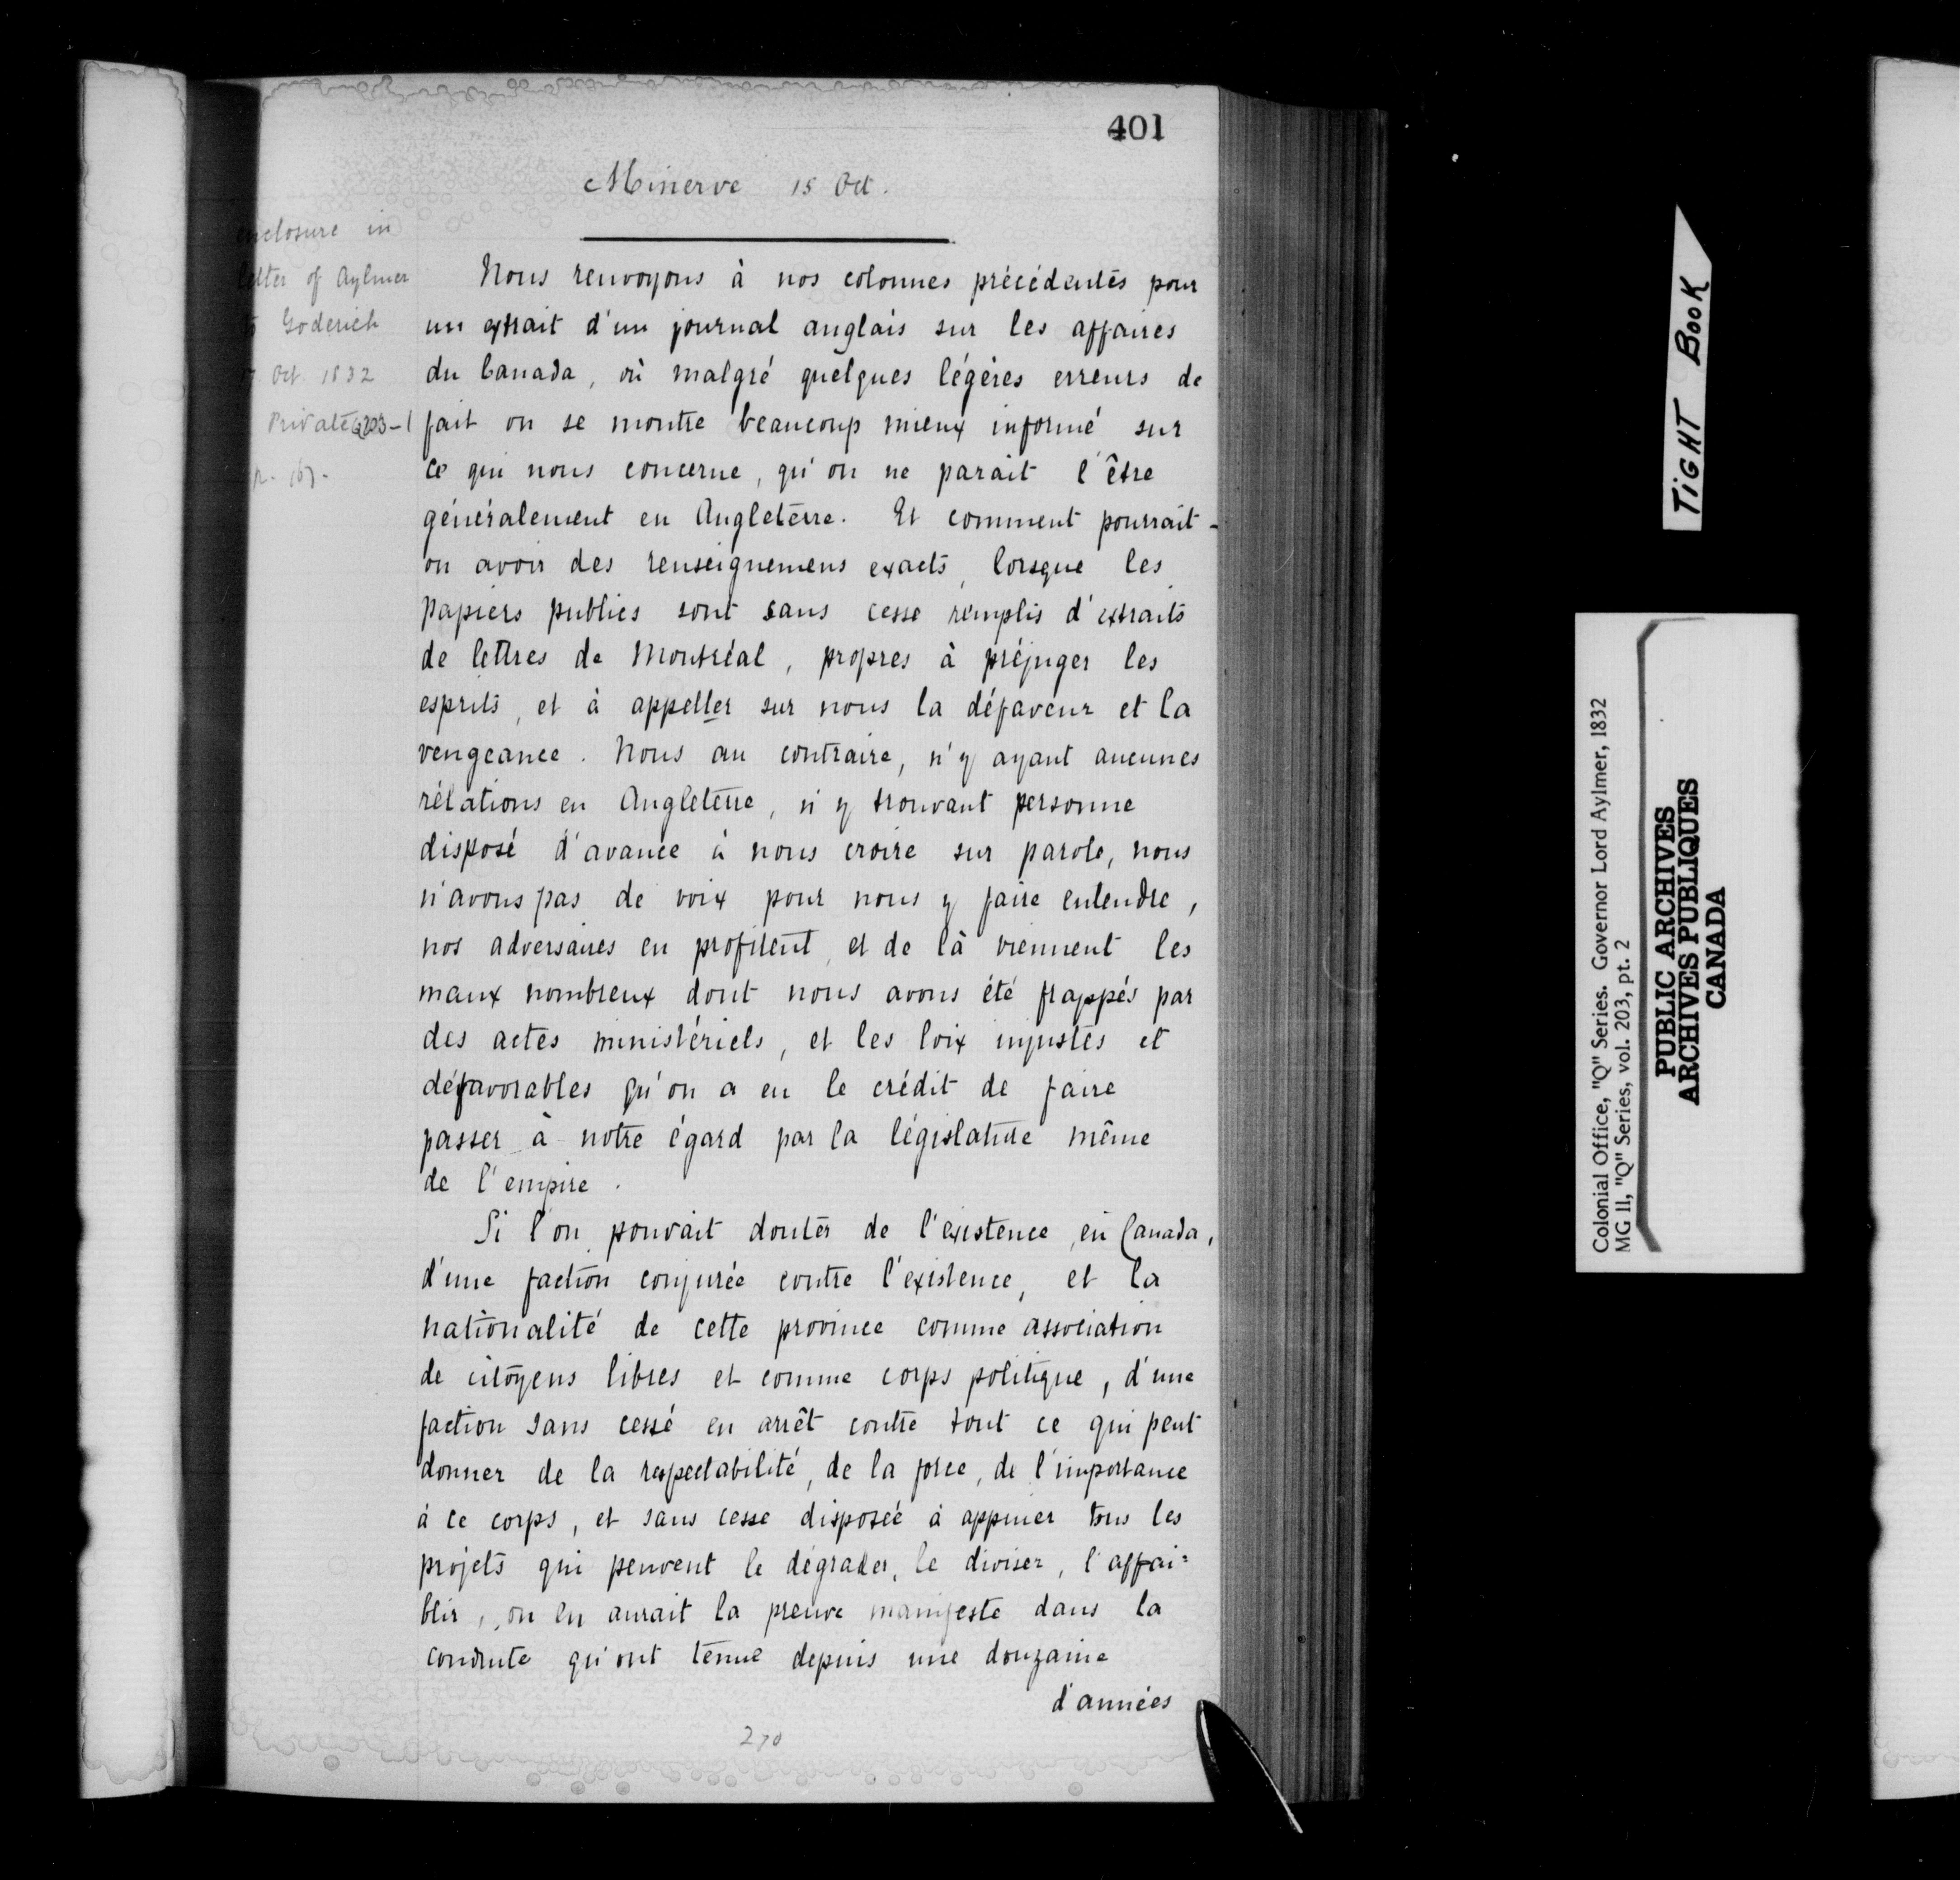 401
Minerve 15 Oct.
enclosure in
letter of Aylmer
to Goderich
17 Oct. 1832
Private Q203-1
p.
Nous renvoyons à nos colonnes précédentes pour
un extrait d'un journal anglais sur les affaires
du Canada, où malgré quelques légères erreurs de
fait on se montre beaucoup mieux informé sur
ce qui nous concerne, qu'on ne parait l'être
généralement en Angleterre. Et comment pourrait-
on avoir des renseignemens exacts, lorsque les
papiers publics sont sans cesse remplis d'extraits
de lettres de Montréal, propres à préjuger les
esprits, et à appeller sur nous la défaveur et la
vengeance. Nous au contraire, n'y ayant aucunes
rélations en Angleterre, n'y trouvant personne
disposé d'avance à nous croire sur parole, nous
n'avons pas de voix pour nous y faire entendre,
nos adversaires en profitent, et de là viennent les
maux nombreux dont nous avons été frappés par
des actes ministériels, et les loix injustes et
défavorables qu'on a eu le crédit de faire
passer à notre égard par la législature même
de l'empire.
Si l'on pouvait douter de l'existence, en Canada,
d'une faction conjurée contre l'existence, et la
nationalité de cette province comme association
de citoyens libres et comme corps politique, d'une
faction sans cesse en arrêt contre tout ce qui peut
donner de la respectabilité, de la force, de l'importance
à ce corps, et sans cesse disposée à appuier tous les
projets qui peuvent le dégrader, le diviser, l'affai=
blir, on en aurait la preuve manifeste dans la
conduite qu'ont tenue depuis une douzaine
d'années
270
TIGHT BOOK
Colonial Office, "Q" Series. Governor Lord Aylmer, 1832
MG 11, "Q" Series, vol. 203, pt. 2
PUBLIC ARCHIVES
ARCHIVES PUBLIQUES
CANADA